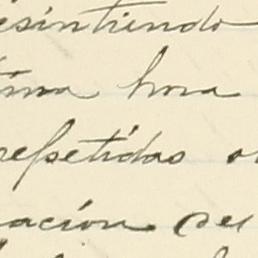 esintiendo
tima hora
repetidas o
ación del